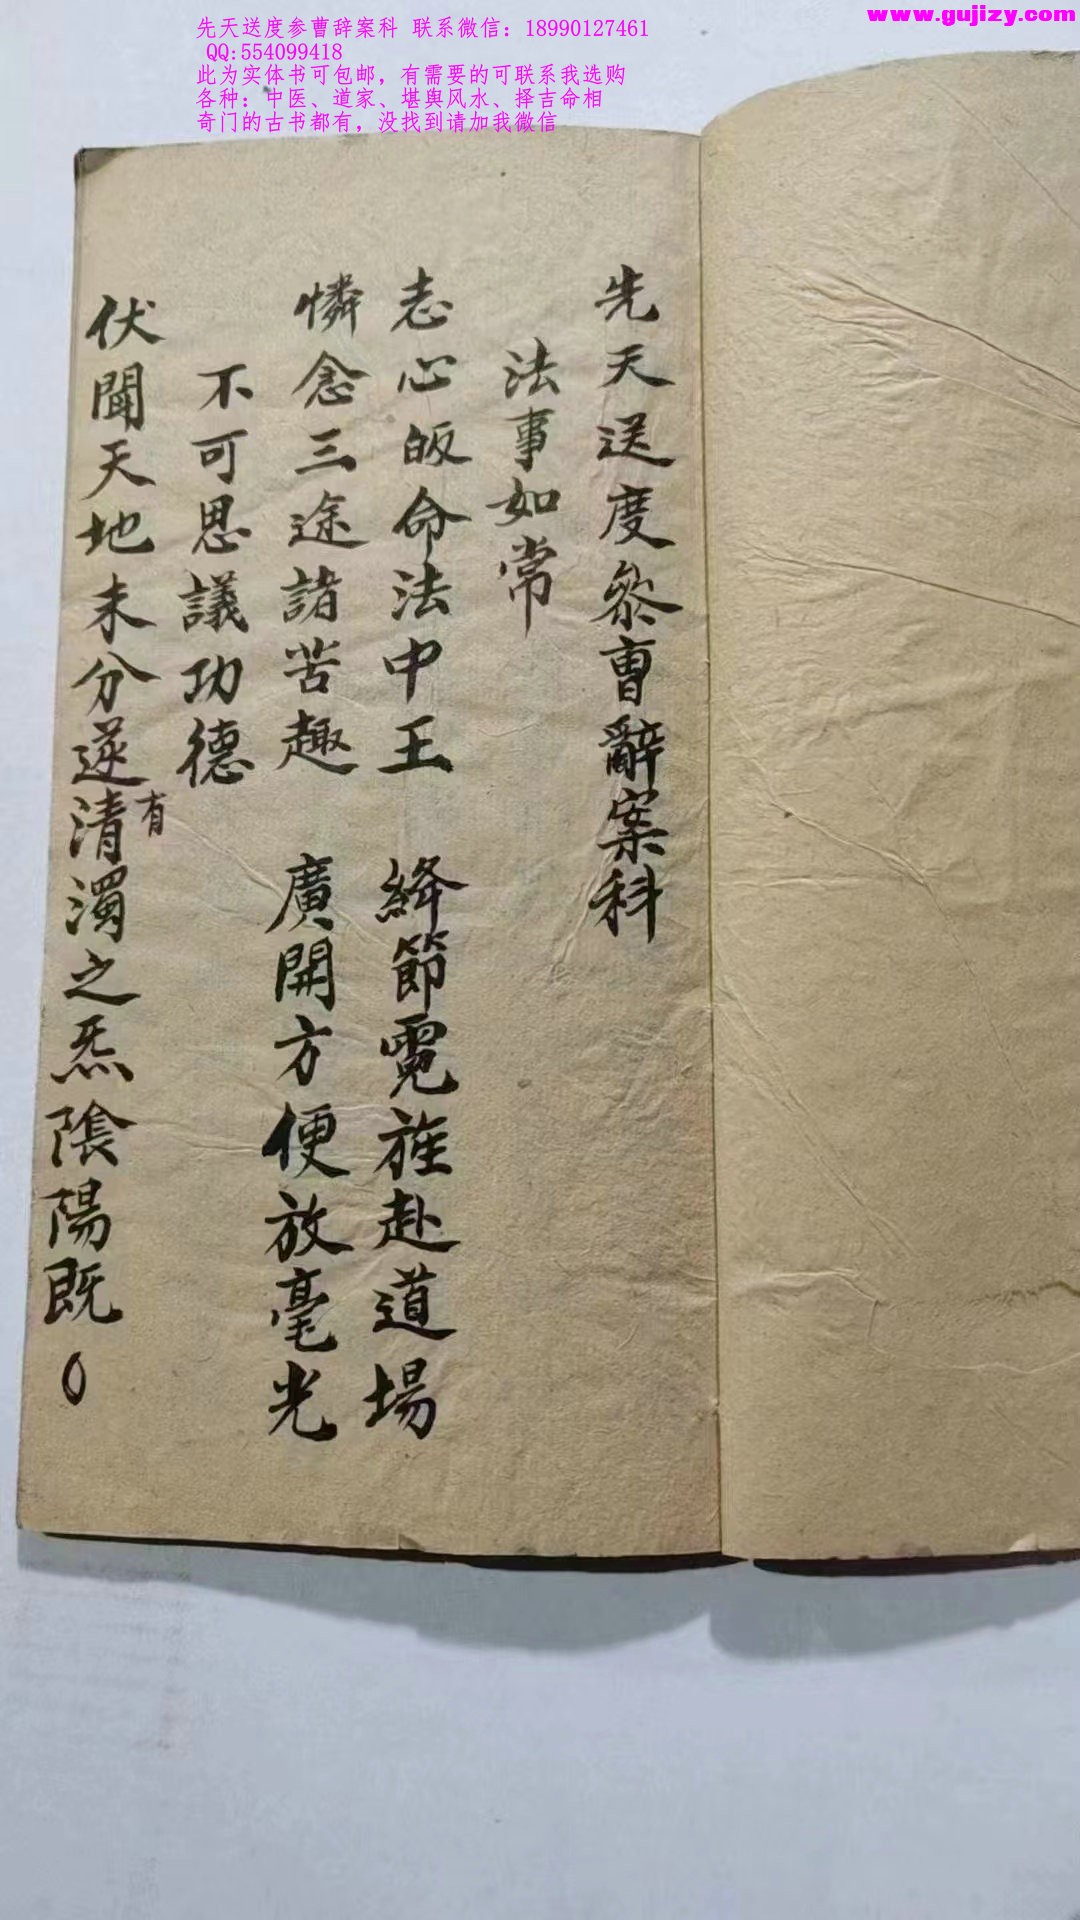 www.gujizy.com
先天送度参曹辞案科 联系微信：18990127461
QQ:554099418
此为实体书可包邮，有需要的可联系我选购
各种：中医、道家、堪舆风水、择吉命相
奇门的古书都有，没找到请加我微信
先天送度叅曺辭案科
法事如常
志心皈命法中王 絳節霓旌赴道場
憐念三途諸苦趣 廣開方便放毫光
不可思議功德
伏聞天地未分遂有清濁之炁陰陽既